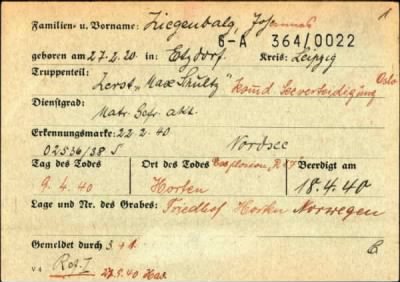 1
Familien- u. Vorname: Ziegenbalg, Johannes
6-A 364/0022
geboren am 27.2.20 in: Etzdorf. Kreis: Leipzig
Truppenteil: Zerst. „Max Schultz" Komd Seeverteidigung Oslo
Dienstgrad:
Matr. Gefr. akt.
Erkennungsmarke: 22.2.40
02536/38 S Nordsee
Tag des Todes Ort des Todes Beerdigt am
9.4.40 Horten 18.4.40
Lage und Nr. des Grabes: Friedhof Horten Norwegen
Gemeldet durch
v.4 27.9.40